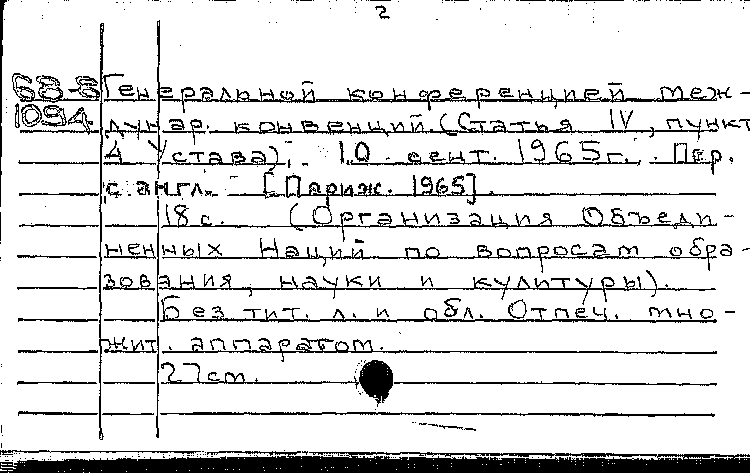 2
68-8 Генеральной конференцией меж-
1094 дунар. конвенций. (Статья IV, пункт
4 Устава). 10 сент. 1965г. Пер.
с англ. [Париж. 1965].
18 с. (Организация Объеди-
ненных Наций по вопросам обра-
зования, науки и культуры).
Без тит. л. и обл. Отпеч. мно-
жит. аппаратом.
27 см.